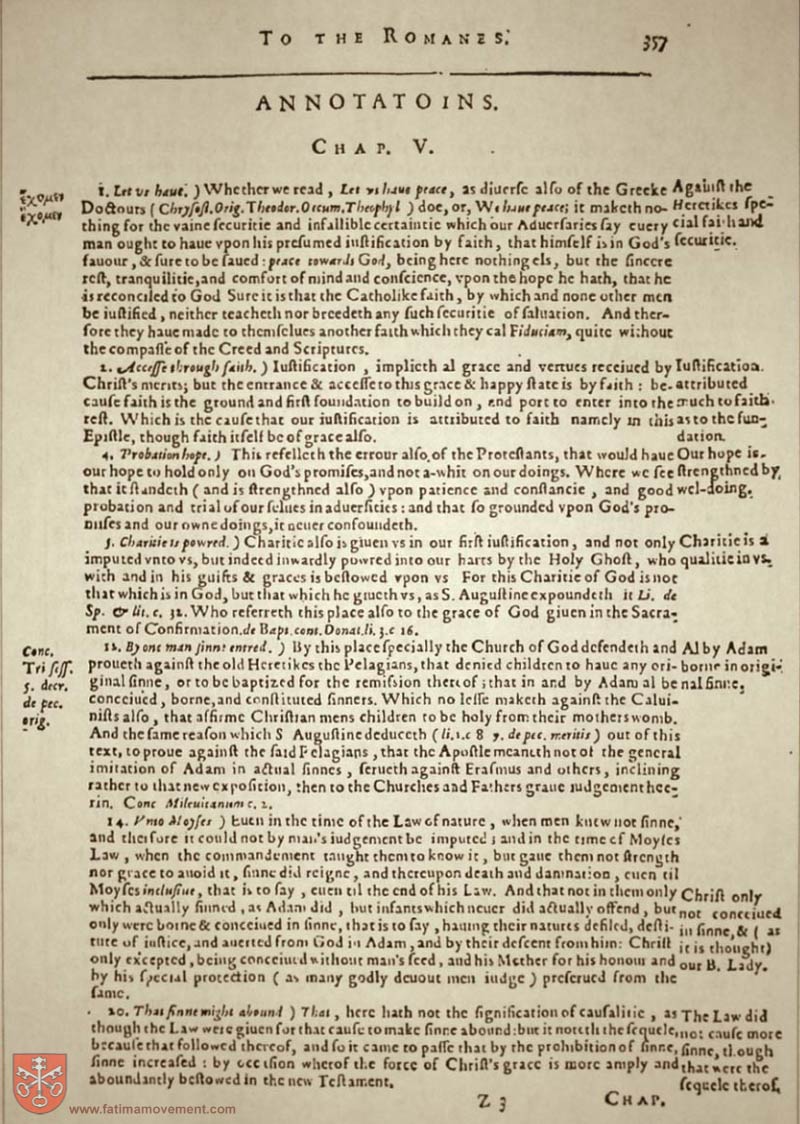 TO THE ROMANES. 357
ANNOTATOINS.
CHAP. V.
1. Let vs haue. ) Whether we read , Let vs haue peace , as diuerſe alſo of the Greeke
Doctours ( Chryſoſt. Orig. Theodor. Oecum. Theophyl ) doe, or, We haue peace; it maketh no-
thing for the vaine ſecuritie and infallible certaintie which our Aduerſaries ſay euery
man ought to haue vpon his preſumed iuſtification by faith , that himſelf is in God's
fauour , & ſure to be ſaued : peace towards God, being here nothing els, but the ſincere
reſt, tranquilitie, and comfort of mind and conſcience, vpon the hope he hath, that he
is reconciled to God Sure it is that the Catholike faith , by which and none other men
be iuſtified , neither teacheth nor breedeth any ſuch ſecuritie of ſaluation. And ther-
fore they haue made to themſelues another faith which they cal Fiduciam, quite without
the compaſſe of the Creed and Scriptures.
Againſt the
Heretikes ſpe-
cial faith and
ſecuritie.
2. Acceſſe through faith. ) Iuſtification , implieth al grace and vertues receiued by
Chriſt's merits; but the entrance & acceſſe to this grace & happy ſtate is by faith : be-
cauſe faith is the ground and firſt foundation to build on , and port to enter into the
reſt. Which is the cauſe that our iuſtification is attributed to faith namely in this
Epiſtle, though faith itſelf be of grace alſo.
Iuſtification.
attributed
much to faith.
as to the fun-
dation.
4. Probation hope. ) This refelleth the errour alſo, of the Proteſtants, that would haue
our hope to hold only on God's promiſes, and not a-whit on our doings. Where we ſee
that it ſtandeth ( and is ſtrengthned alſo ) vpon patience and conſtancie , and good
probation and trial of our ſelues in aduerſities : and that ſo grounded vpon God's pro-
miſes and our owne doings, it neuer confoundeth.
Our hope is.
ſtrengthned by
wel-doing.
5. Charitie is powred. ) Charitie alſo is giuen vs in our firſt iuſtification , and not only
imputed vnto vs, but indeed inwardly powred into our harts by the Holy Ghoſt, who
with and in his guifts & graces is beſtowed vpon vs For this Charitie of God is not
that which is in God, but that which he giueth vs, as S. Auguſtine expoundeth it Li. de
Sp. & lit. c. 32. Who referreth this place alſo to the grace of God giuen in the Sacra-
ment of Confirmation. de Bapt. cont. Donat. li. 3. c 16.
Charitie is a
qualitie in vs.
12. By one man ſinne entred. ) By this place ſpecially the Church of God defendeth and
proueth againſt the old Heretikes the Pelagians, that denied children to haue any ori-
ginal ſinne, or to be baptized for the remiſſion therof ; that in and by Adam al be
conceiued , borne, and conſtituted ſinners. Which no leſſe maketh againſt the Calui-
niſts alſo , that affirme Chriſtian mens children to be holy from their mothers womb.
And the ſame reaſon which S Auguſtine deduceth ( li. 1. c 8 9. de pec. meritis ) out of this
text, to proue againſt the ſaid Pelagians , that the Apoſtle meaneth not of the general
imitation of Adam in actual ſinnes , ſerueth againſt Eraſmus and others, inclining
rather to that new expoſition, then to the Churches and Fathers graue iudgement hee-
rin. Conc Mileuitanum c. 2.
Al by Adam
borne in origi-
nal ſinne.
14. Vnto Moyſes ) Euen in the time of the Law of nature , when men knew not ſinne,
and therfore it could not by man's iudgement be imputed ; and in the time of Moyſes
Law , when the commandement taught them to know it , but gaue them not ſtrength
nor grace to auoid it, ſinne did reigne, and thereupon death and damnation , euen til
Moyſes incluſiue, that is to ſay , euen til the end of his Law. And that not in them only
which actually ſinned , as Adam did , but infants which neuer did actually offend , but
only were borne & conceiued in ſinne, that is to ſay , hauing their natures defiled, deſti-
ture of iuſtice, and auerted from God in Adam, and by their deſcent from him: Chriſt
only excepted , being conceiued without man's ſeed , and his Mother for his honour and
by his ſpecial protection ( as many godly deuout men iudge ) preſerued from the
ſame.
Chriſt only
not conceiued
in ſinne, & ( as
it is thought)
our B. Lady.
20. That ſinne might abound ) That , here hath not the ſignification of cauſalitie , as
though the Law were giuen for that cauſe to make ſinne abound: but it noteth the ſequele,
becauſe that followed thereof, and ſo it came to paſſe that by the prohibition of ſinne,
ſinne increaſed : by occaſion wherof the force of Chriſt's grace is more amply and
aboundantly beſtowed in the new Teſtament.
The Law did
not cauſe more
ſinne, though
that were the
ſequele therof.
ἔχομεν
ἔχωμεν
Conc.
Tri ſeſſ.
5. decr.
de pec.
orig.
Z 3 CHAP.
www.fatimamovement.com